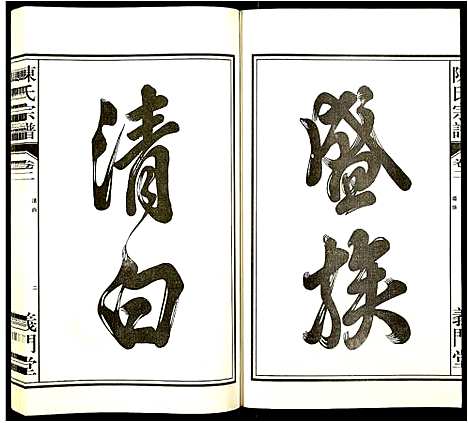 陳氏宗譜
卷二
義門堂
族
清白
陳氏宗譜
卷二
清白
二
義門堂